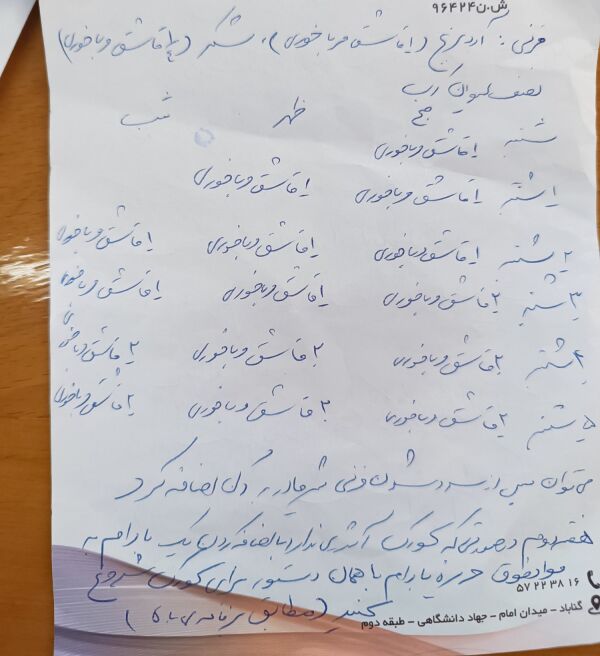 ش.ن ۹۶۴۲۴
فرنی: آرد برنج (۱ قاشق مرباخوری)، شکر (۱/۴ قاشق مرباخوری)
نصف لیوان آب
صبح ظهر شب
شنبه ۱ قاشق مرباخوری
۱ شنبه ۱ قاشق مرباخوری ۱ قاشق مرباخوری
۲ شنبه ۱ قاشق مرباخوری ۱ قاشق مرباخوری ۱ قاشق مرباخوری
۳ شنبه ۲ قاشق مرباخوری ۱ قاشق مرباخوری ۱ قاشق مرباخوری
۴ شنبه ۲ قاشق مرباخوری ۲ قاشق مرباخوری ۲ قاشق مرباخوری
۵ شنبه ۲ قاشق مرباخوری ۲ قاشق مرباخوری ۲ قاشق مرباخوری
می‌توان پس از سرد شدن فرنی شیر مادر به آن اضافه کرد
هفته دوم در صورتی که کودک آلرژی ندارد با اضافه کردن یک بادام به
مواد فوق حریره بادام با همان دستور برای کودک شروع
کنید (مطابق برنامه‌ی بالا)
۵۷۲۲۳۸۱۶
گناباد - میدان امام - جهاد دانشگاهی - طبقه دوم